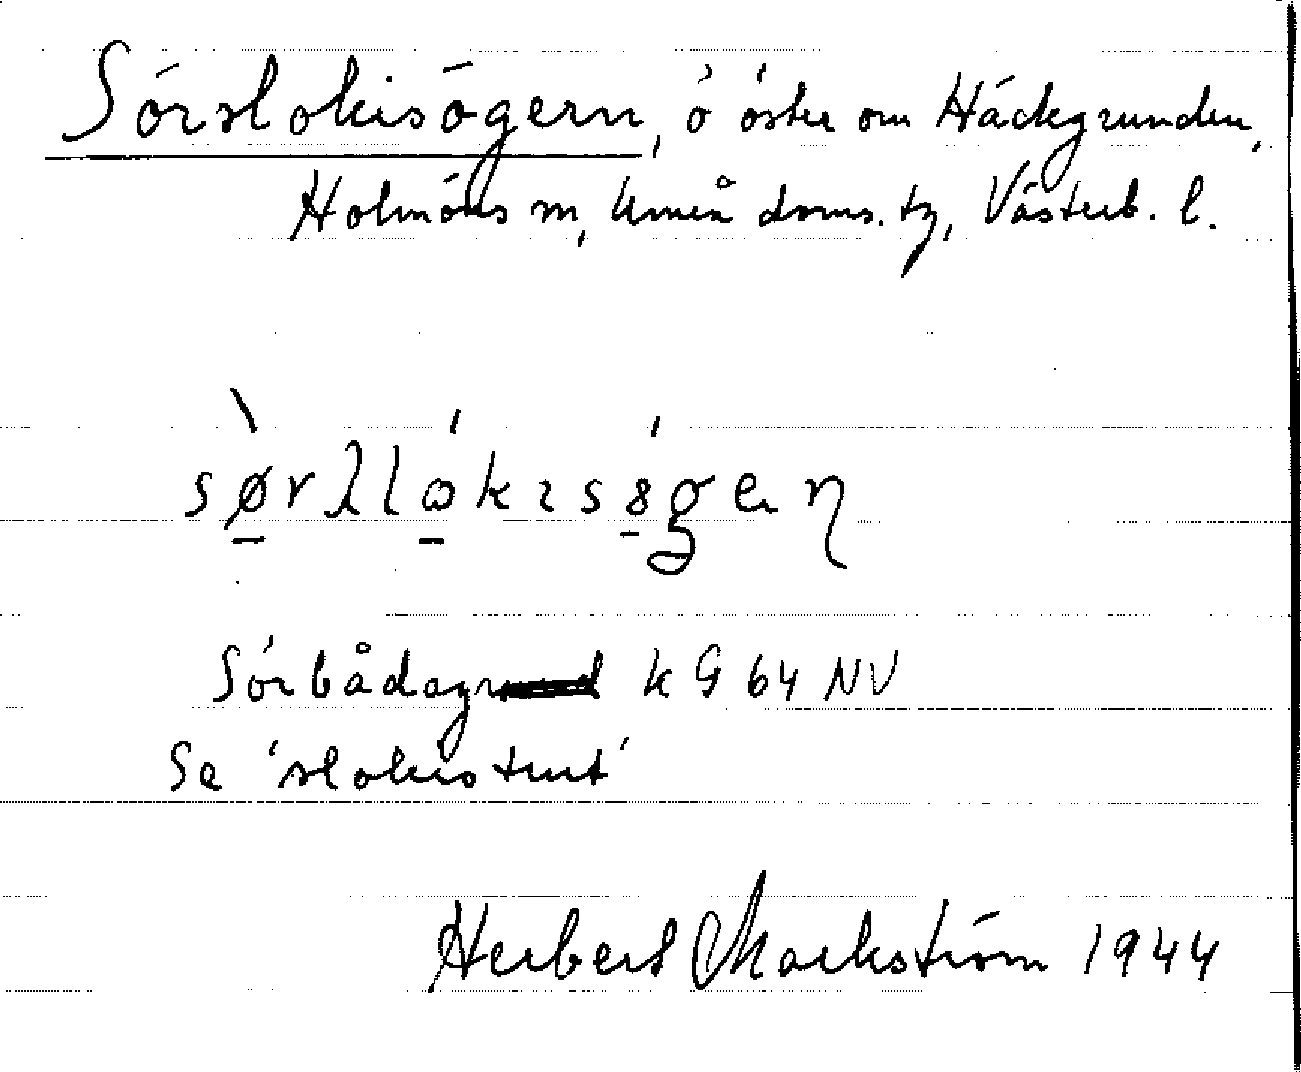 Sörslokisögern, ö öster om Häckgrunden,
Holmöns sn, Umeå doms. tg, Västerb. l.
sørλlωkısȣgeṇ
Sörbådagrund k G 64 NV
Se 'slokistint'
Herbert Markström 1944